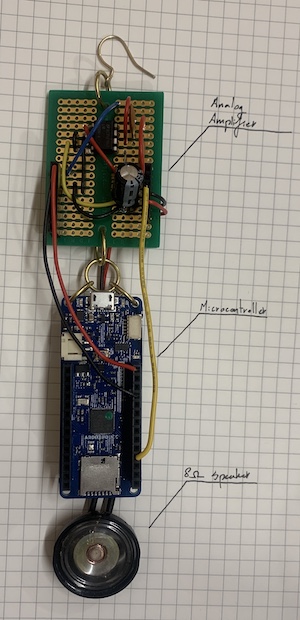 Analog
Amplifier
Microcontroller
8Ω speaker